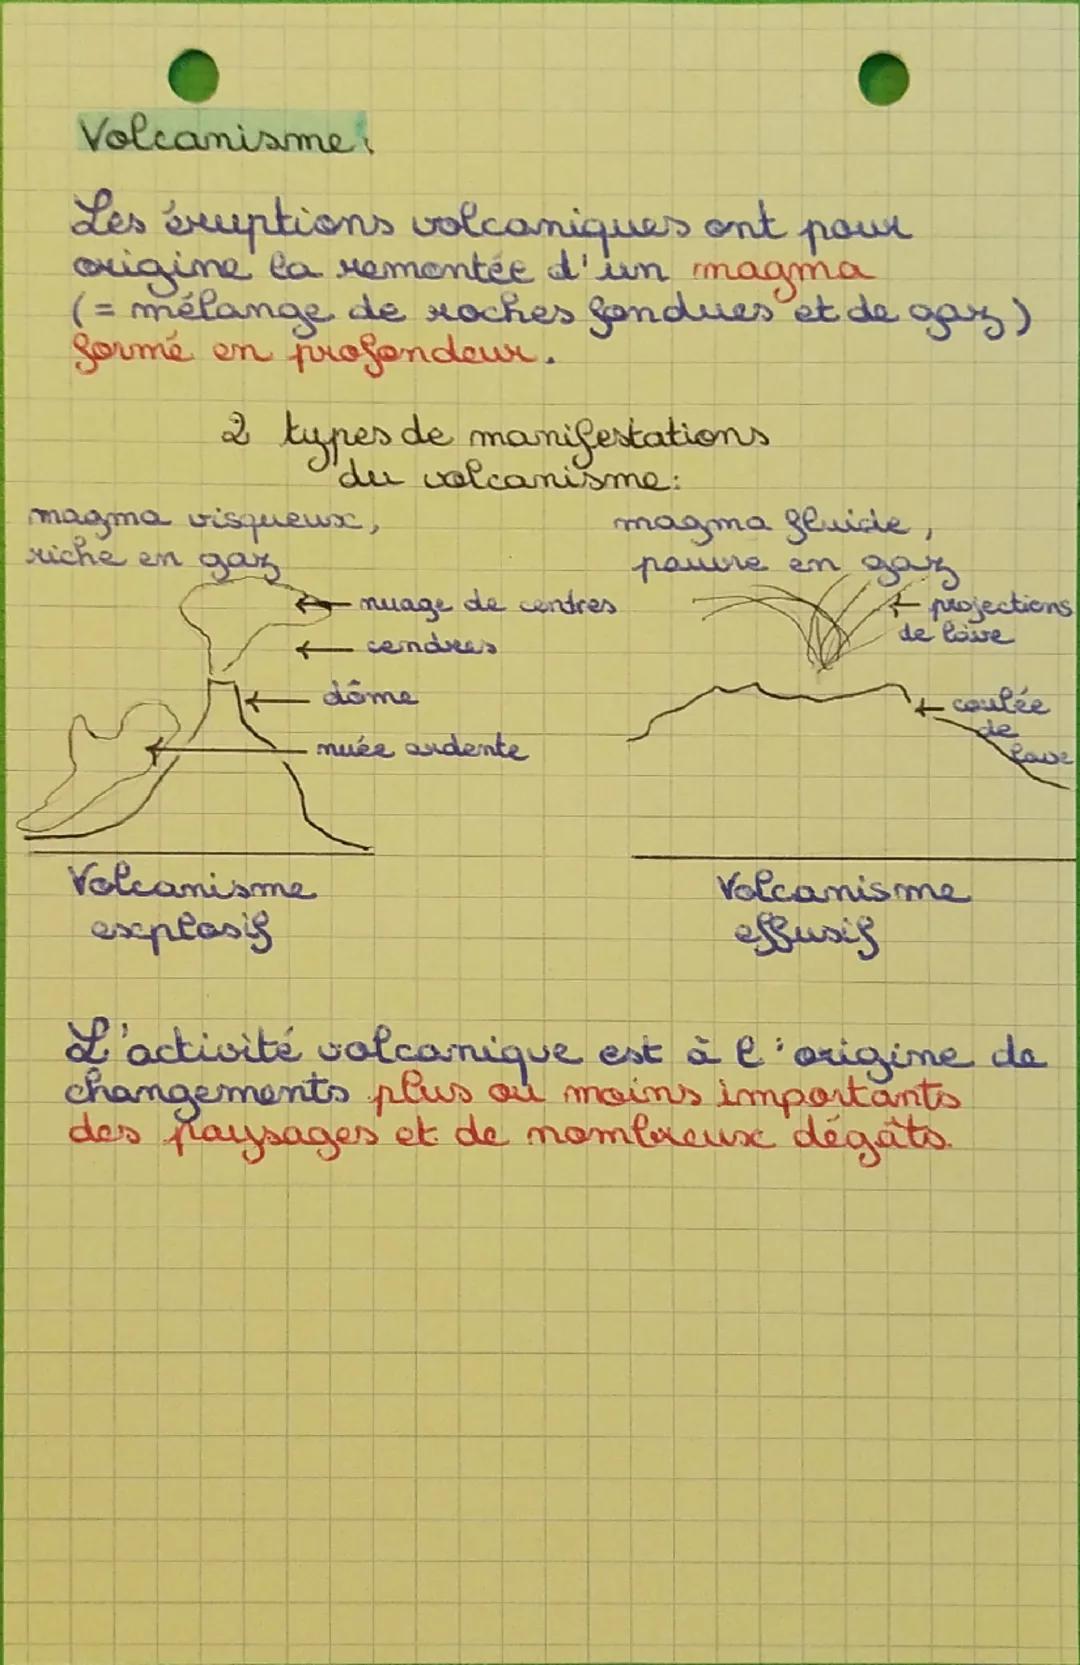 Volcanisme:
Les éruptions volcaniques ont pour
origine la remontée d'un magma
(= mélange de roches fondues et de gaz)
formé en profondeur.
2 types de manifestations
du volcanisme:
magma visqueux,
riche en gaz
nuage de centres
cendres
dôme
nuée ardente
Volcanisme
explosif
magma fluide,
pauvre en gaz
projections
de lave
coulée
de
lave
Volcanisme
effusif
L'activité volcanique est à l'origine de
changements plus ou moins importants
des paysages et de nombreux dégâts.